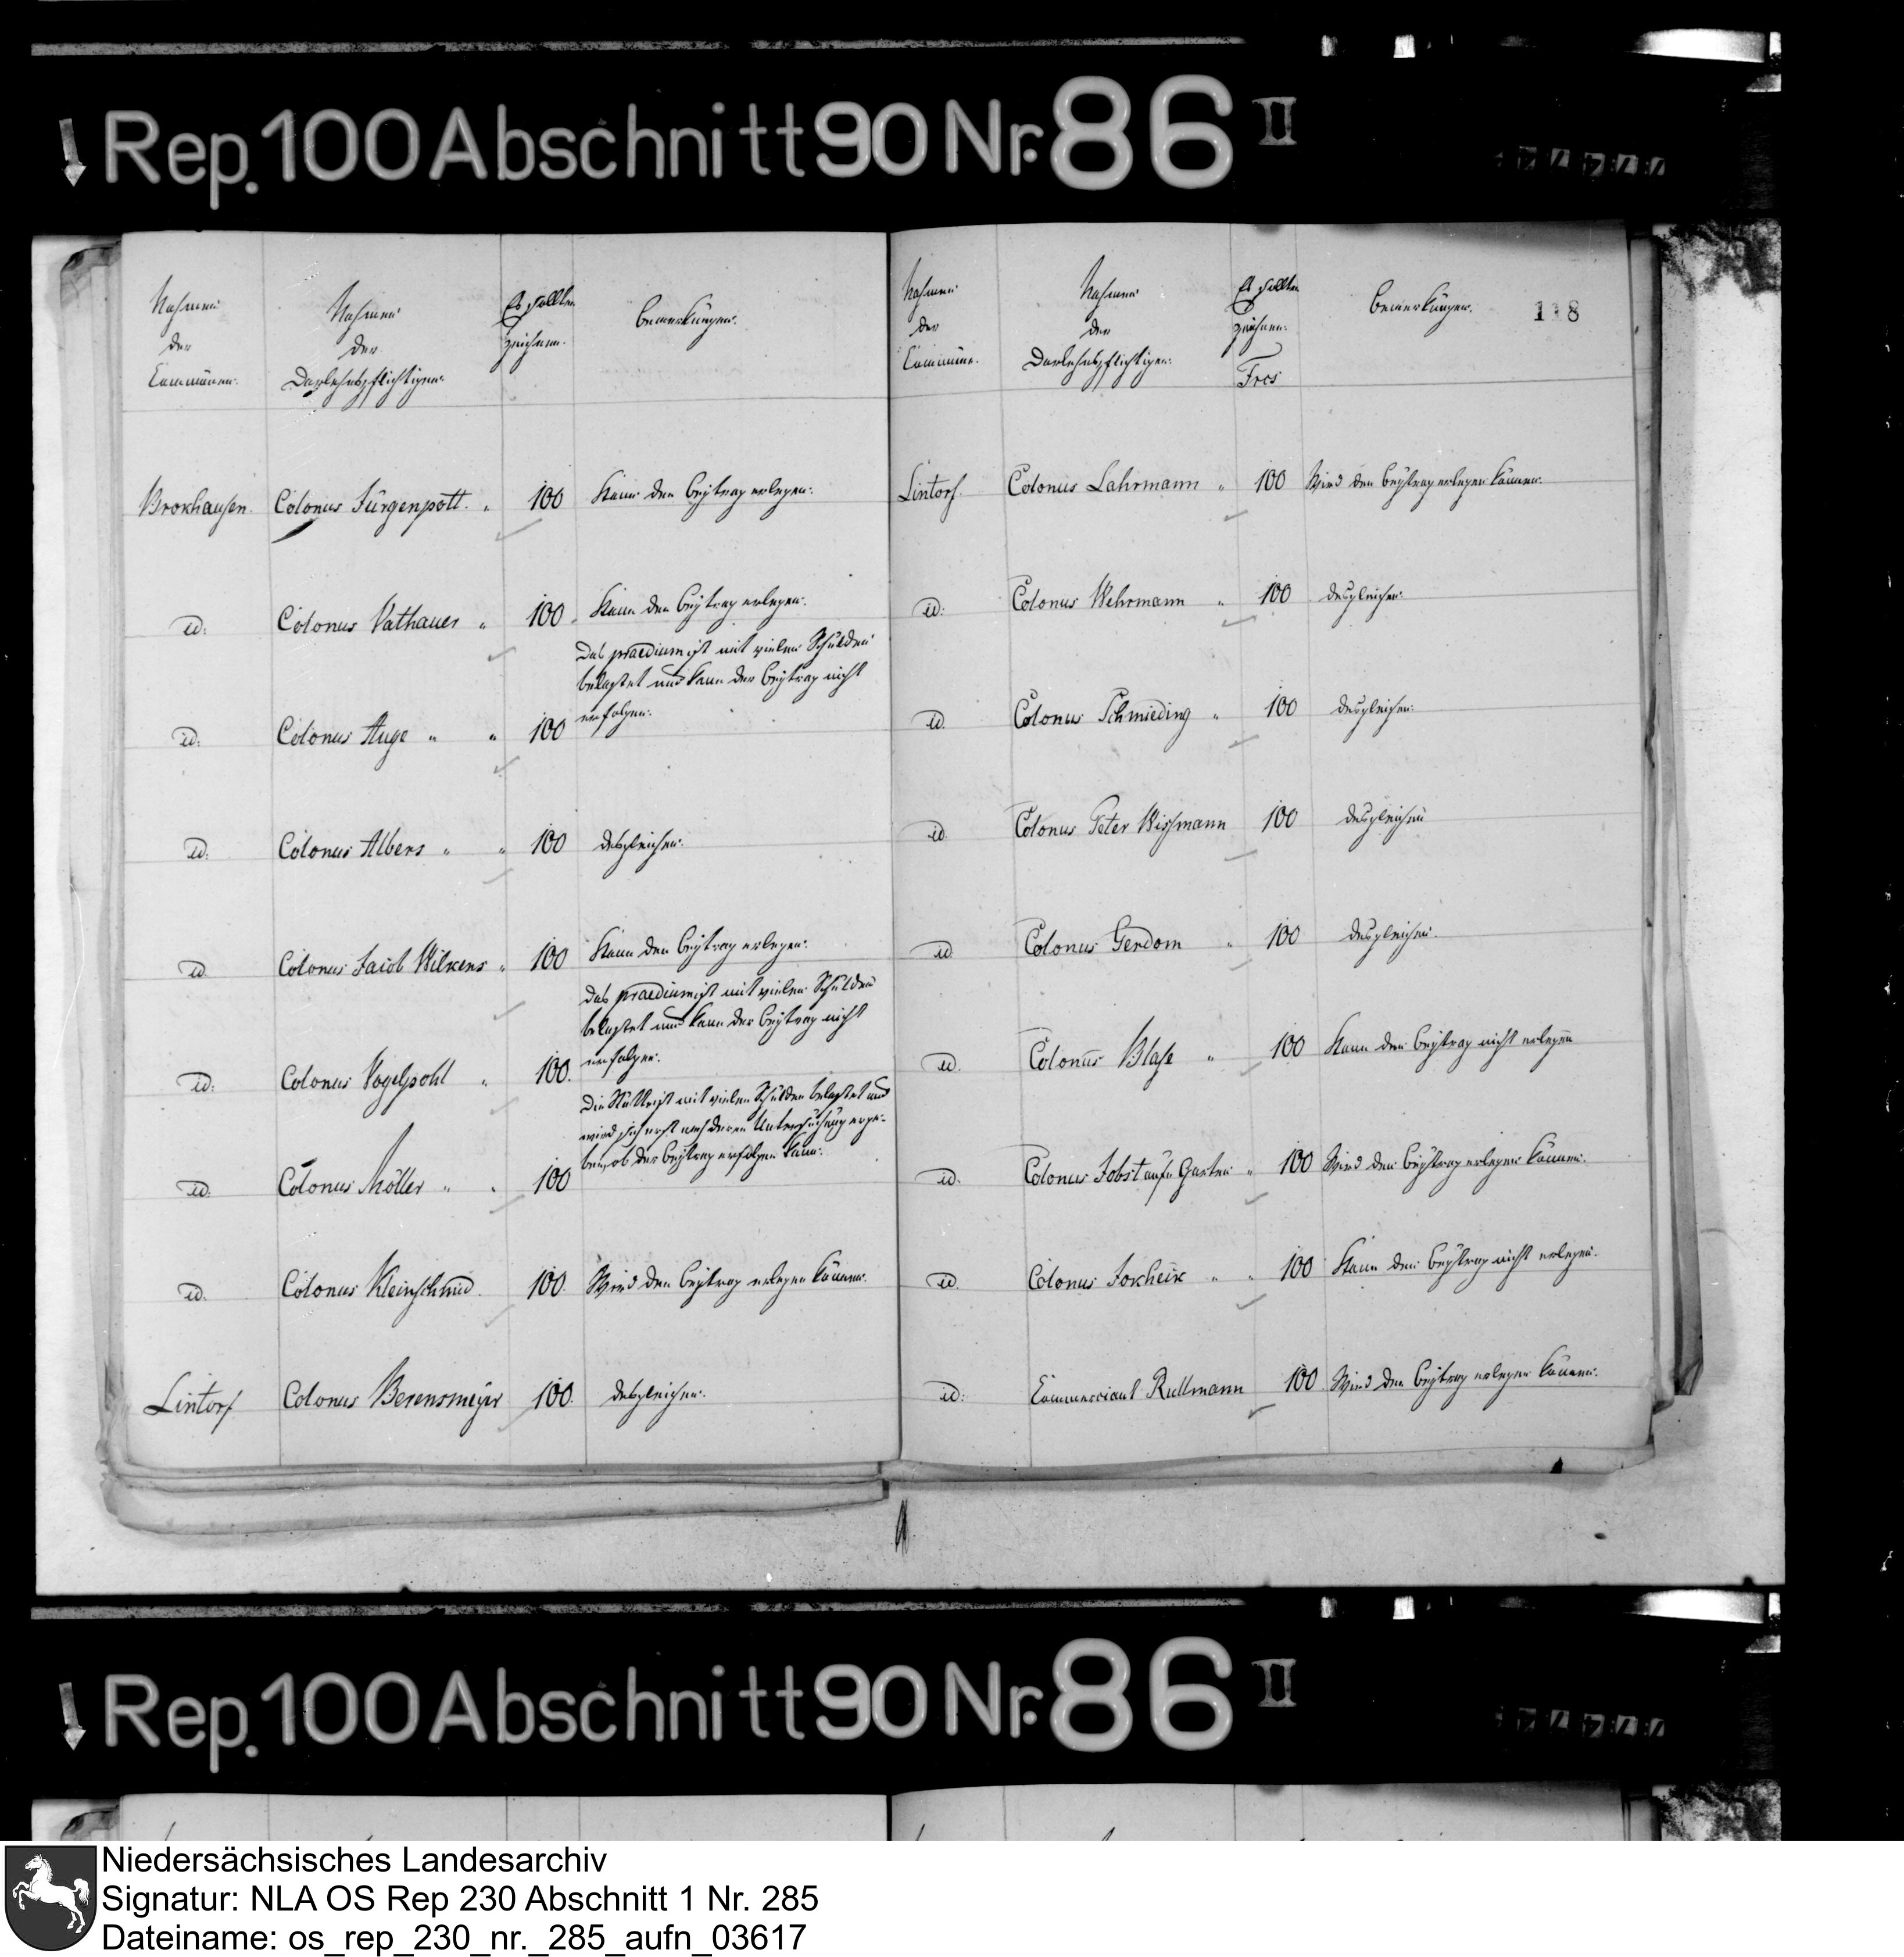 Rep. 100 Abschnitt 90 Nr. 86 II
Nahmen der Communen. Nahmen der Darlehnspflichtigen. Es sollten zeichnen. Bemerkungen.
Broxhausen. Colonus Jürgenpott. " 100 Kann den Beytrag erlegen.
id: Colonus Vathauer " 100. Kann den Beytrag erlegen.
Das praedium ist mit vielen Schulden
belastet und kann der Beytrag nicht
id: Colonus Auge " " 100 erfolgen.
id: Colonus Albers " " 100 desgleichen.
id Colonus Jacob Wilkens " 100 Kann den Beytrag erlegen.
Das praedium ist mit vielen Schulden
belastet und kann der Beytrag nicht
id: Colonus Vogelpohl " 100. erfolgen.
Die Stätte ist mit vielen Schulden belastet und
wird sich erst nach deren Untersuchung erge-
id: Colonus Möller " " 100 ben, ob der Beytrag erfolgen kann.
id. Colonus Kleinschmid. 100. Wird den Beytrag erlegen können.
Lintorf Colonus Berensmeyer 100. desgleichen.
Nahmen der Commune. Nahmen der Darlehnspflichtigen. Es sollten zeichnen. Frcs Bemerkungen. 118
Lintorf. Colonus Lahrmann " 100 Wird den Beytrag erlegen können.
id: Colonus Wehrmann " 100 desgleichen.
id. Colonus Schmieding " 100 desgleichen.
id. Colonus Peter Wissmann 100 desgleichen
id Colonus Gerdom " 100 desgleichen.
id. Colonus Blase " 100 Kann den Beytrag nicht erlegen
id. Colonus Jobst aufn Garten " 100 Wird den Beytrag erlegen können.
id. Colonus Jokheik " " 100 Kann den Beytrag nicht erlegen.
id: Commerciant Rullmann 100. Wird den Beytrag erlegen können.
Rep. 100 Abschnitt 90 Nr. 86 II
Niedersächsisches Landesarchiv
Signatur: NLA OS Rep 230 Abschnitt 1 Nr. 285
Dateiname: os_rep_230_nr._285_aufn_03617